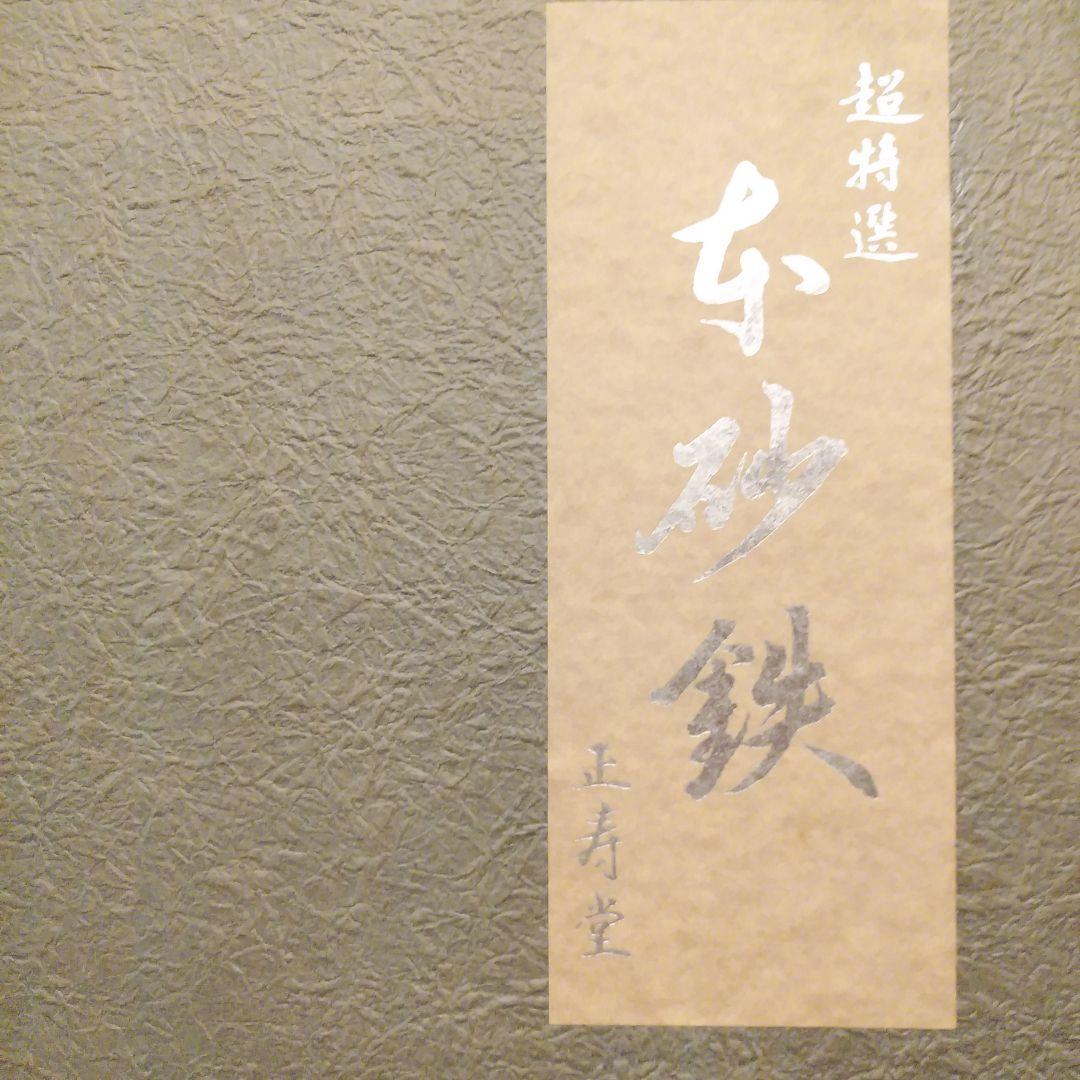 超特選
本砂鉄
正寿堂